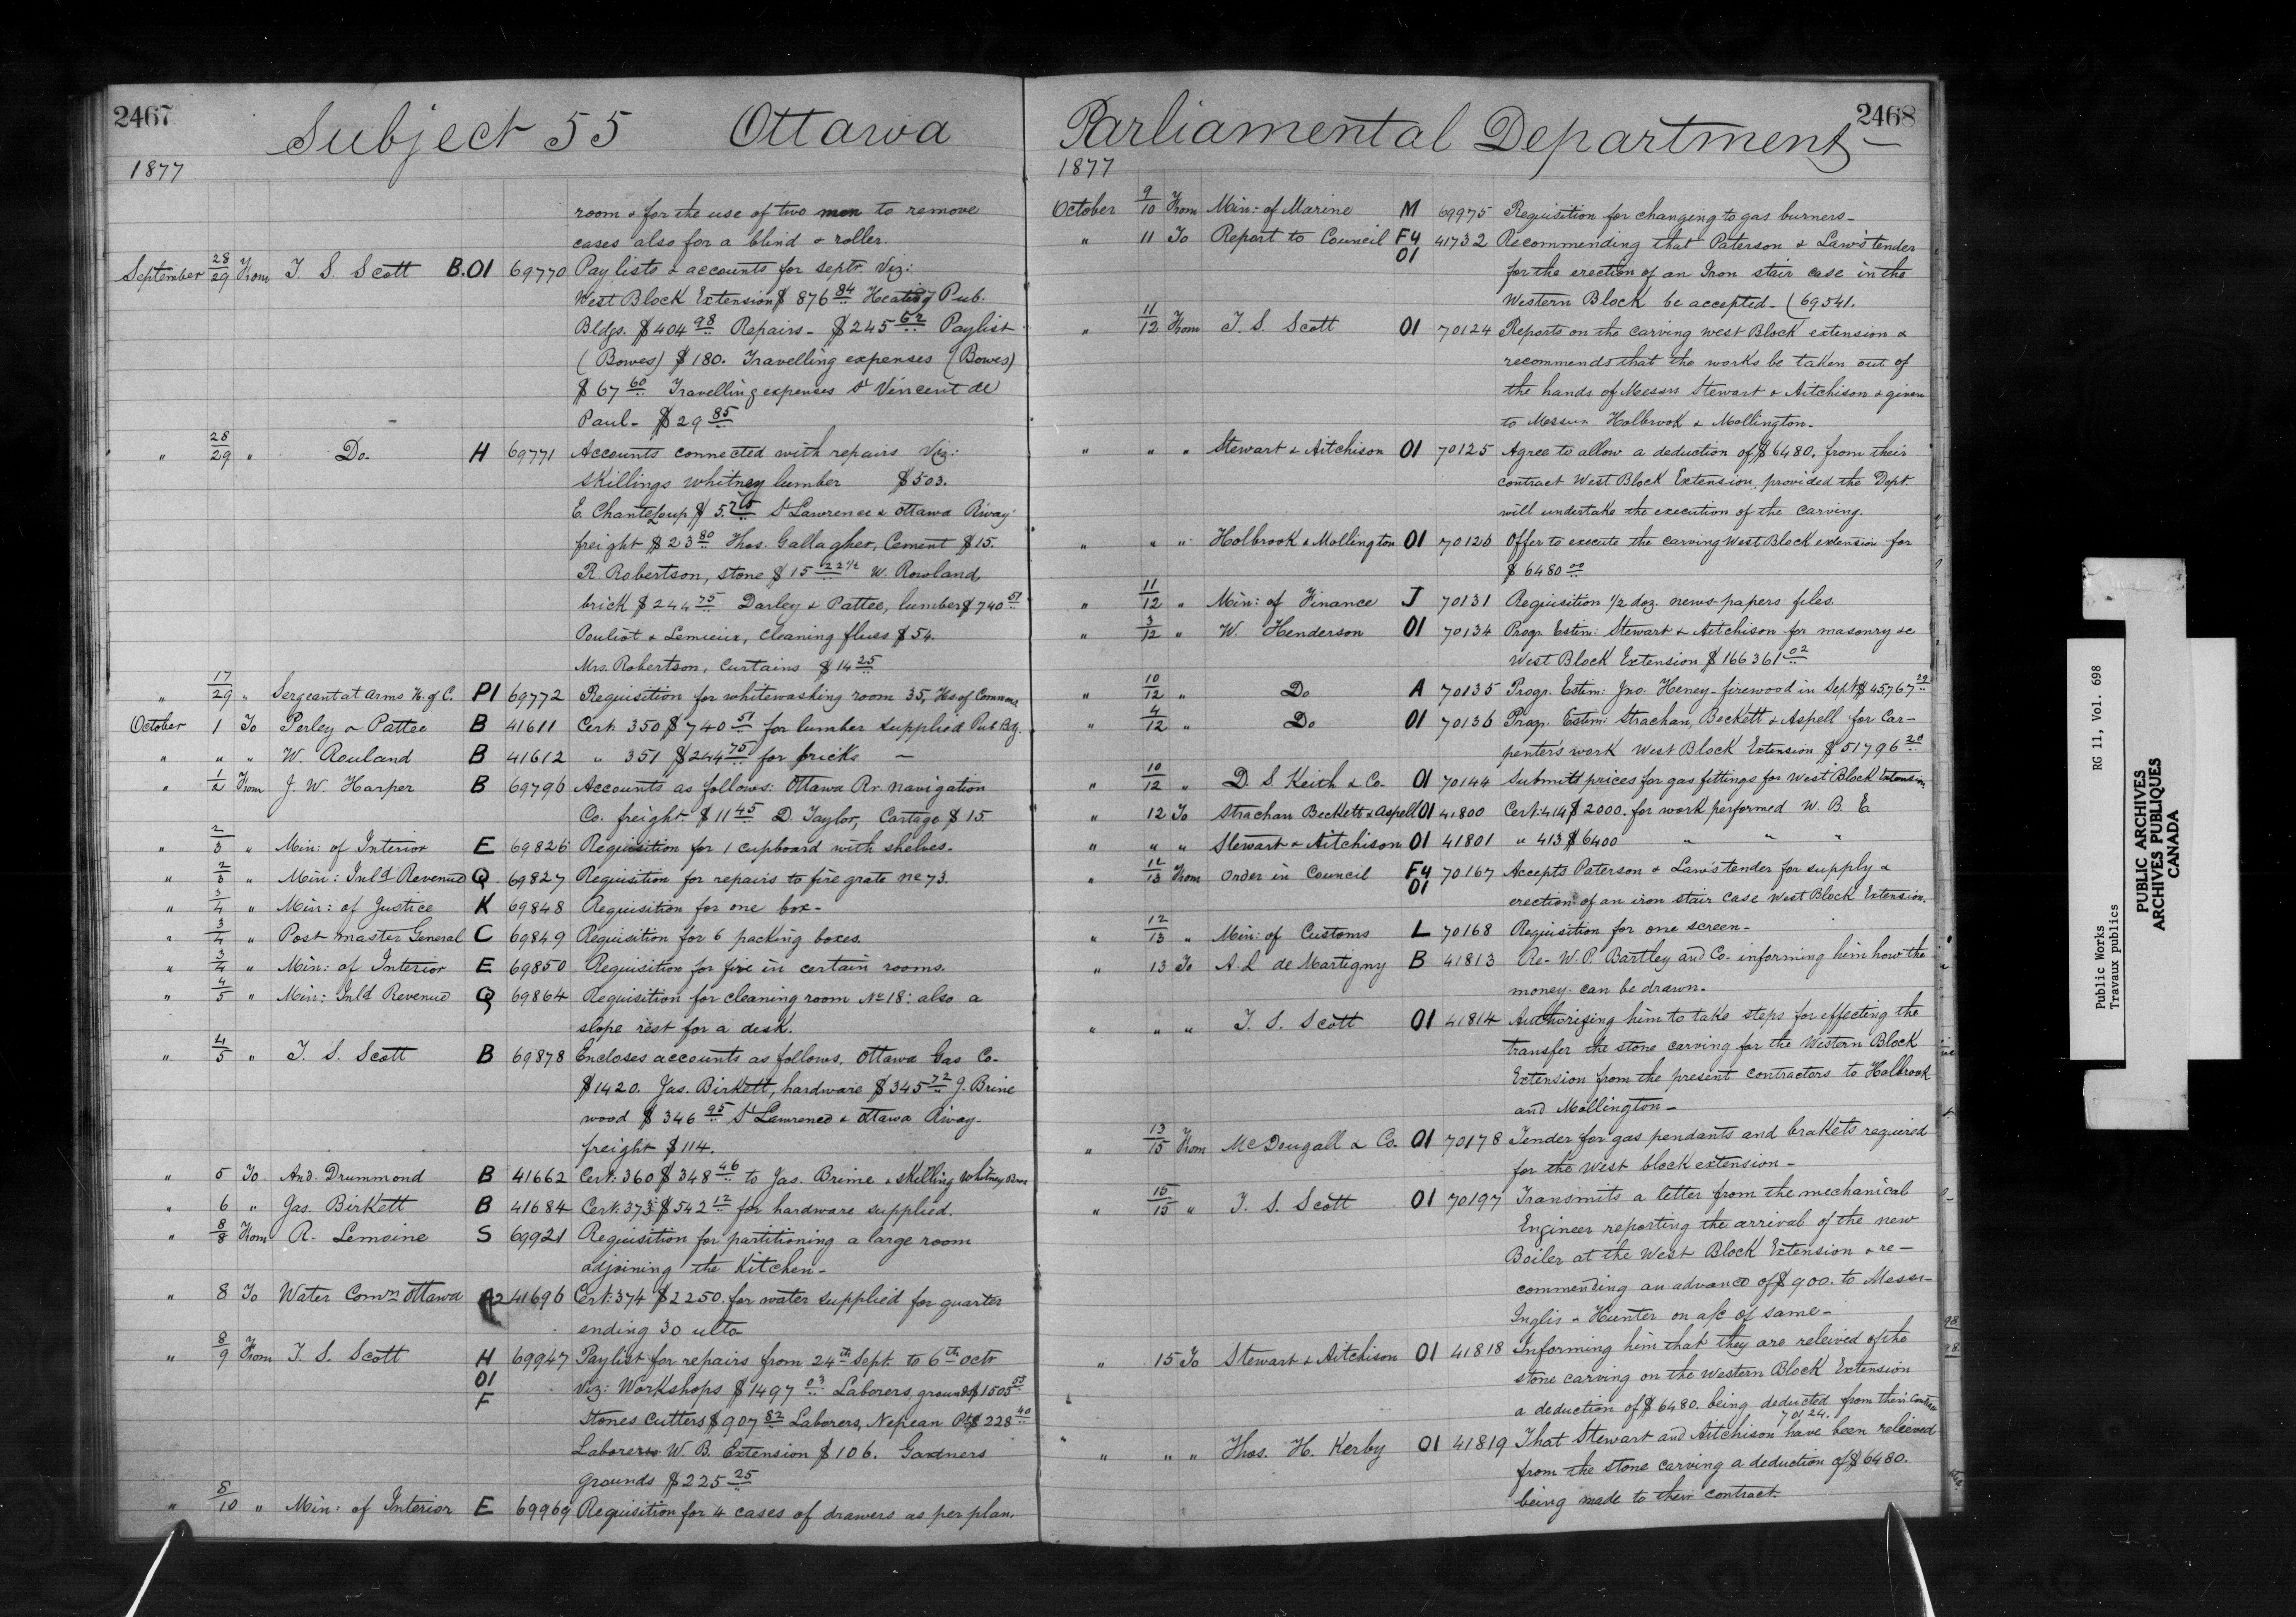 2467
Subject 55 Ottawa
1877
room & for the use of two men to remove
cases also for a blind & roller.
September 28/29 From T. S. Scott B.O1 69770 Pay lists & accounts for septr. Viz:
West Block Extension $ 876 84 Heating Pub.
Bldgs. $ 404 98 Repairs - $ 245 62 Paylist
(Bowes) $ 180. Travelling expenses (Bowes)
$ 67 60 Travelling expenses St Vincent de
Paul - $ 29 85
" 28/29 " Do. H 69771 Accounts connected with repairs Viz:
Skillings Whitney lumber $ 503.
E. Chanteloup $ 5.75 St Lawrence & Ottawa Riway
freight $ 23 80 Thos. Gallagher, Cement $ 15.
R. Robertson, stone $ 15 22 1/2 W. Rowland,
brick $ 244 75 Darley & Pattee, lumber $ 740 51
Pouliot & Lemieux, cleaning flues $ 54.
Mrs. Robertson, curtains $ 14 25
" 17/29 " Sergeant at Arms H. of C. P1 69772 Requisition for whitewashing room 35, Hs of Commons
October 1 To Perley & Pattee B 41611 Cert. 350 $ 740 51 for lumber supplied Pub Bdg.
" " " W. Rouland B 41612 " 351 $ 244 75 for bricks —
" 1/2 From J. W. Harper B 69796 Accounts as follows: Ottawa Rr. navigation
Co. freight. $ 11 45 D. Taylor, Cartage $ 15.
" 2/3 " Min: of Interior E 69826 Requisition for 1 cupboard with shelves.
" 2/3 " Min: Inld Revenue Q 69827 Requisition for repairs to fire grate no 73.
" 3/4 " Min: of Justice K 69848 Requisition for one box.
" 3/4 " Post master General C 69849 Requisition for 6 packing boxes.
" 3/4 " Min: of Interior E 69850 Requisition for fire in certain rooms.
" 4/5 " Min: Inld Revenue Q 69864 Requisition for cleaning room No 18: also a
slope rest for a desk.
" 4/5 " T. S. Scott B 69878 Encloses accounts as follows. Ottawa Gas Co.
$ 1420. Jas. Birkett, hardware $ 345 72 J. Brine
wood $ 346 95 St Lawrence & Ottawa Riway.
freight $ 114.
" 5 To And. Drummond B 41662 Cert: 360 $ 348 46 to Jas. Brime & Skilling Whitney Bros
" 6 " Jas. Birkett B 41684 Cert. 373 $ 542 12 for hardware supplied.
" 8/8 From R. Lemoine S 69921 Requisition for partitioning a large room
adjoining the Kitchen -
" 8 To Water Comrn Ottawa A2 41696 Cert: 374 $ 2250. for water supplied for quarter
ending 30 ulto
" 8/9 From T. S. Scott H 69947 Paylist for repairs from 24th Sept. to 6th octr
O1 Viz: Workshops $ 1497 03 Laborers, grounds $ 1505 53
F Stones Cutters $ 907 82 Laborers, Nepean Pt $ 228 40
Laborers W. B. Extension $ 106. Gardners
grounds $ 225 25
" 8/10 " Min: of Interior E 69969 Requisition for 4 cases of drawers as per plan.
2468
Parliamental Department —
1877
October 9/10 From Min: of Marine M 69975 Requisition for changing to gas burners -
" 11 To Report to Council F4 O1 41732 Recommending that Paterson & Law's tender
for the erection of an Iron stair case in the
Western Block be accepted - (69541.
" 11/12 From T. S. Scott O1 70124 Reports on the carving west Block extension &
recommends that the works be taken out of
the hands of Messrs Stewart & Aitchison & given
to Messrs Holbrook & Mollington -
" " " Stewart & Aitchison O1 70125 Agree to allow a deduction of $ 6480. from their
contract West Block Extension, provided the Dept.
will undertake the execution of the carving.
" " " Holbrook & Mollington O1 70126 Offer to execute the carving West Block extension for
$ 6480 00
" 11/12 " Min: of Finance J 70131 Requisition 1/2 doz. news-papers files.
" 3/12 " W. Henderson O1 70134 Progr. Estim: Stewart & Aitchison for masonry &c
West Block Extension $ 166361 02
" 10/12 " Do A 70135 Progr. Estim: Jno. Heney - firewood in Sept $ 45,767 29
" 4/12 " Do O1 70136 Progr. Estim: Strachan, Beckett & Aspell for Car-
penter's work West Block Extension $ 51796 20
" 10/12 " D. S. Keith & Co. O1 70144 Submitt prices for gas fittings for West Block Extension
" 12 To Strachan Beckett & Aspell O1 41800 Cert: 414 $ 2000. for work performed W. B. E
" " " Stewart & Aitchison O1 41801 " 413 $ 6400 " " "
" 12/13 From Order in Council F4 O1 70167 Accepts Paterson & Law's tender for supply &
erection of an iron stair case West Block Extension.
" 12/13 " Min: of Customs L 70168 Requisition for one screen -
" 13 To A. L de Martigny B 41813 Re- W. P. Bartley and Co. informing him how the
money can be drawn.
" " " T. S. Scott O1 41814 Authorizing him to take steps for effecting the
transfer the stone carving for the Western Block
Extension from the present contractors to Holbrook
and Mollington -
" 13/15 From McDougall & Co. O1 70178 Tender for gas pendants and brakets required
for the West block extension -
" 15/15 " T. S. Scott O1 70197 Transmits a letter from the mechanical
Engineer reporting the arrival of the new
Boiler at the West Block Extension & re-
commending an advance of $ 900. to Messrs
Inglis & Hunter on a/c of same -
" 15 To Stewart & Aitchison O1 41818 Informing him that they are releived of the
stone carving on the Western Block Extension
a deduction of $ 6480. being deducted from their Contract
70124.
" " " Thos. H. Kerby O1 41819 That Stewart and Aitchison have been releived
from the stone carving a deduction of $ 6480.
being made to their contract.
Public Works RG 11, Vol. 698
Travaux publics
PUBLIC ARCHIVES
ARCHIVES PUBLIQUES
CANADA